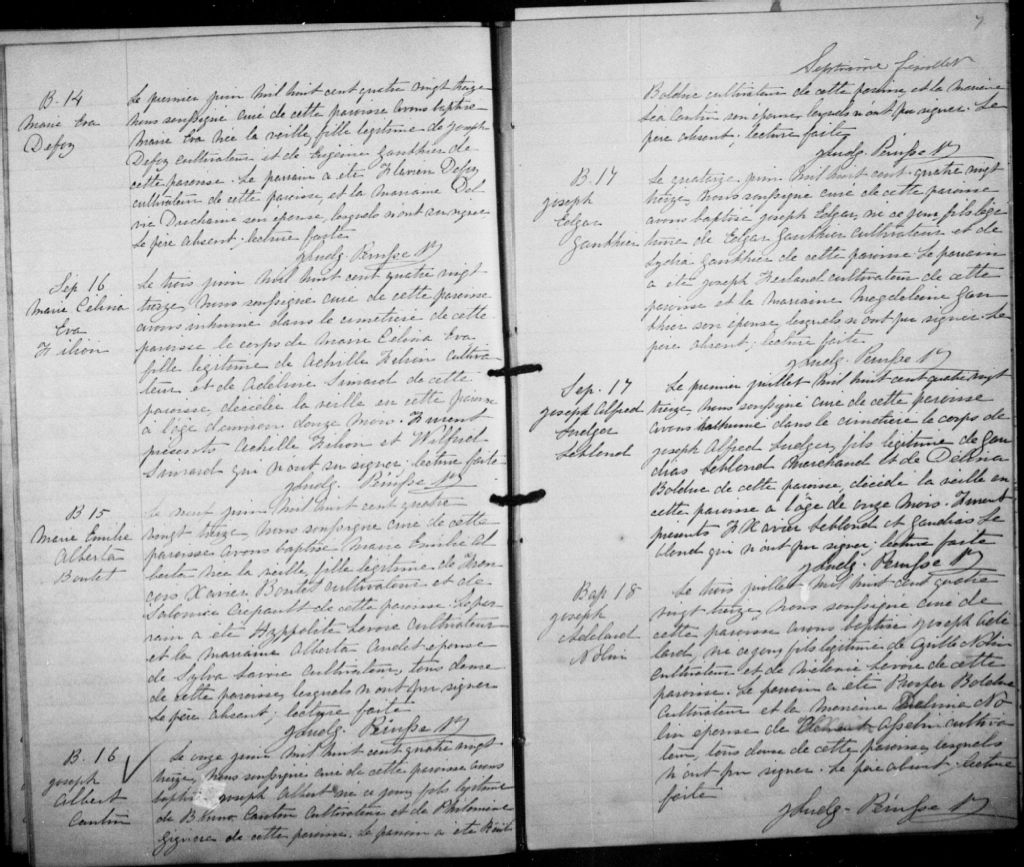 B. 14
Marie Eva
Defoy
Le premier juin Mil huit cent quatre vingt treize
nous soussigné curé de cette paroisse avons baptisé
Marie Eva née la veille, fille légitime de Joseph
Defoy cultivateur et de Eugénie Gauthier de
cette paroisse. Le parrain a été Flavien Defoy
cultivateur de cette paroisse, et la marraine Del
via Duchaine son épouse, lesquels n'ont su signer
Le père absent; lecture faite
Sep 16
Marie Célina
Eva
Filion
Le trois juin Mil huit cent quatre vingt
treize, Nous soussigné curé de cette paroisse
avons inhumé dans le cimetière de cette
paroisse le corps de Marie Célina Eva
fille légitime de Achille Filion cultiva
teur et de Adeline Simard de cette
paroisse, décédée la veille en cette paroisse
à l'âge d'environ douze mois. Furent
présents Achille Filion et Wilfrid
Simard qui n'ont su signer. lecture faite
B 15
Marie Emilie
Alberta
Boutet
Le neuf juin Mil huit cent quatre
vingt treize, Nous soussigné curé de cette
paroisse avons baptisé Marie Emilie Al
berta née la veille, fille légitime de Fran
cois Xavier Boutet cultivateur et de
Salomée Crépault de cette paroisse. Le par
rain a été Hyppolite Lavoie cultivateur
et la marraine Alberta Audet épouse
de Sylva Lavoie cultivateur, tous deux
de cette paroisse, lesquels n'ont pu signer
Le père absent; lecture faite
B. 16
Joseph
Albert
Cantin
Le onze juin Mil huit cent quatre vingt
treize, Nous soussigné curé de cette paroisse avons
baptisé Joseph Albert né ce jour, fils légitime
de Cantin Cultivateur et de Philomène
de cette paroisse. Le parrain a été
7
Septième feuillet
Bolduc cultivateur de cette paroisse et la marraine
Léa Cantin son épouse, lesquels n'ont pu signer. Le
père absent; lecture faite
B. 17
Joseph
Edgar
Gauthier
Le quatorze juin Mil huit cent quatre vingt
treize, Nous soussigné curé de cette paroisse
avons baptisé Joseph Edgar, né ce jour, fils légi
time de Edgar Gauthier cultivateur et de
Lydia Gauthier de cette paroisse. Le parrain
a été Joseph cultivateur de cette
paroisse et la marraine Magdeleine Gau
thier son épouse, lesquels n'ont pu signer. Le
père absent; lecture faite
Sep. 17
Joseph Alfred
Ludger
Leblond
Le premier juillet Mil huit cent quatre vingt
treize, nous soussigné curé de cette paroisse
avons inhumé dans le cimetière le corps de
Joseph Alfred Ludger, fils légitime de Gau
dias Leblond Marchand et de Délina
Bolduc de cette paroisse, décédé la veille en
cette paroisse à l'âge de onze mois. Furent
présents F Xavier Leblond et Gaudias Le
blond qui n'ont pu signer; lecture faite
Bap 18
Joseph
Adelard
Nolin
Le trois juillet Mil huit cent quatre
vingt treize, Nous soussigné curé de
cette paroisse avons baptisé Joseph Adé
lard, né ce jour, fils légitime de Cyrille Nolin
cultivateur et de Mélanie Lavoie de cette
paroisse. Le parrain a été Prosper Bolduc
cultivateur et la marraine Delima No
lin épouse de Asselin cultiva
teur, tous deux de cette paroisse, lesquels
n'ont pu signer. Le père absent; lecture
faite